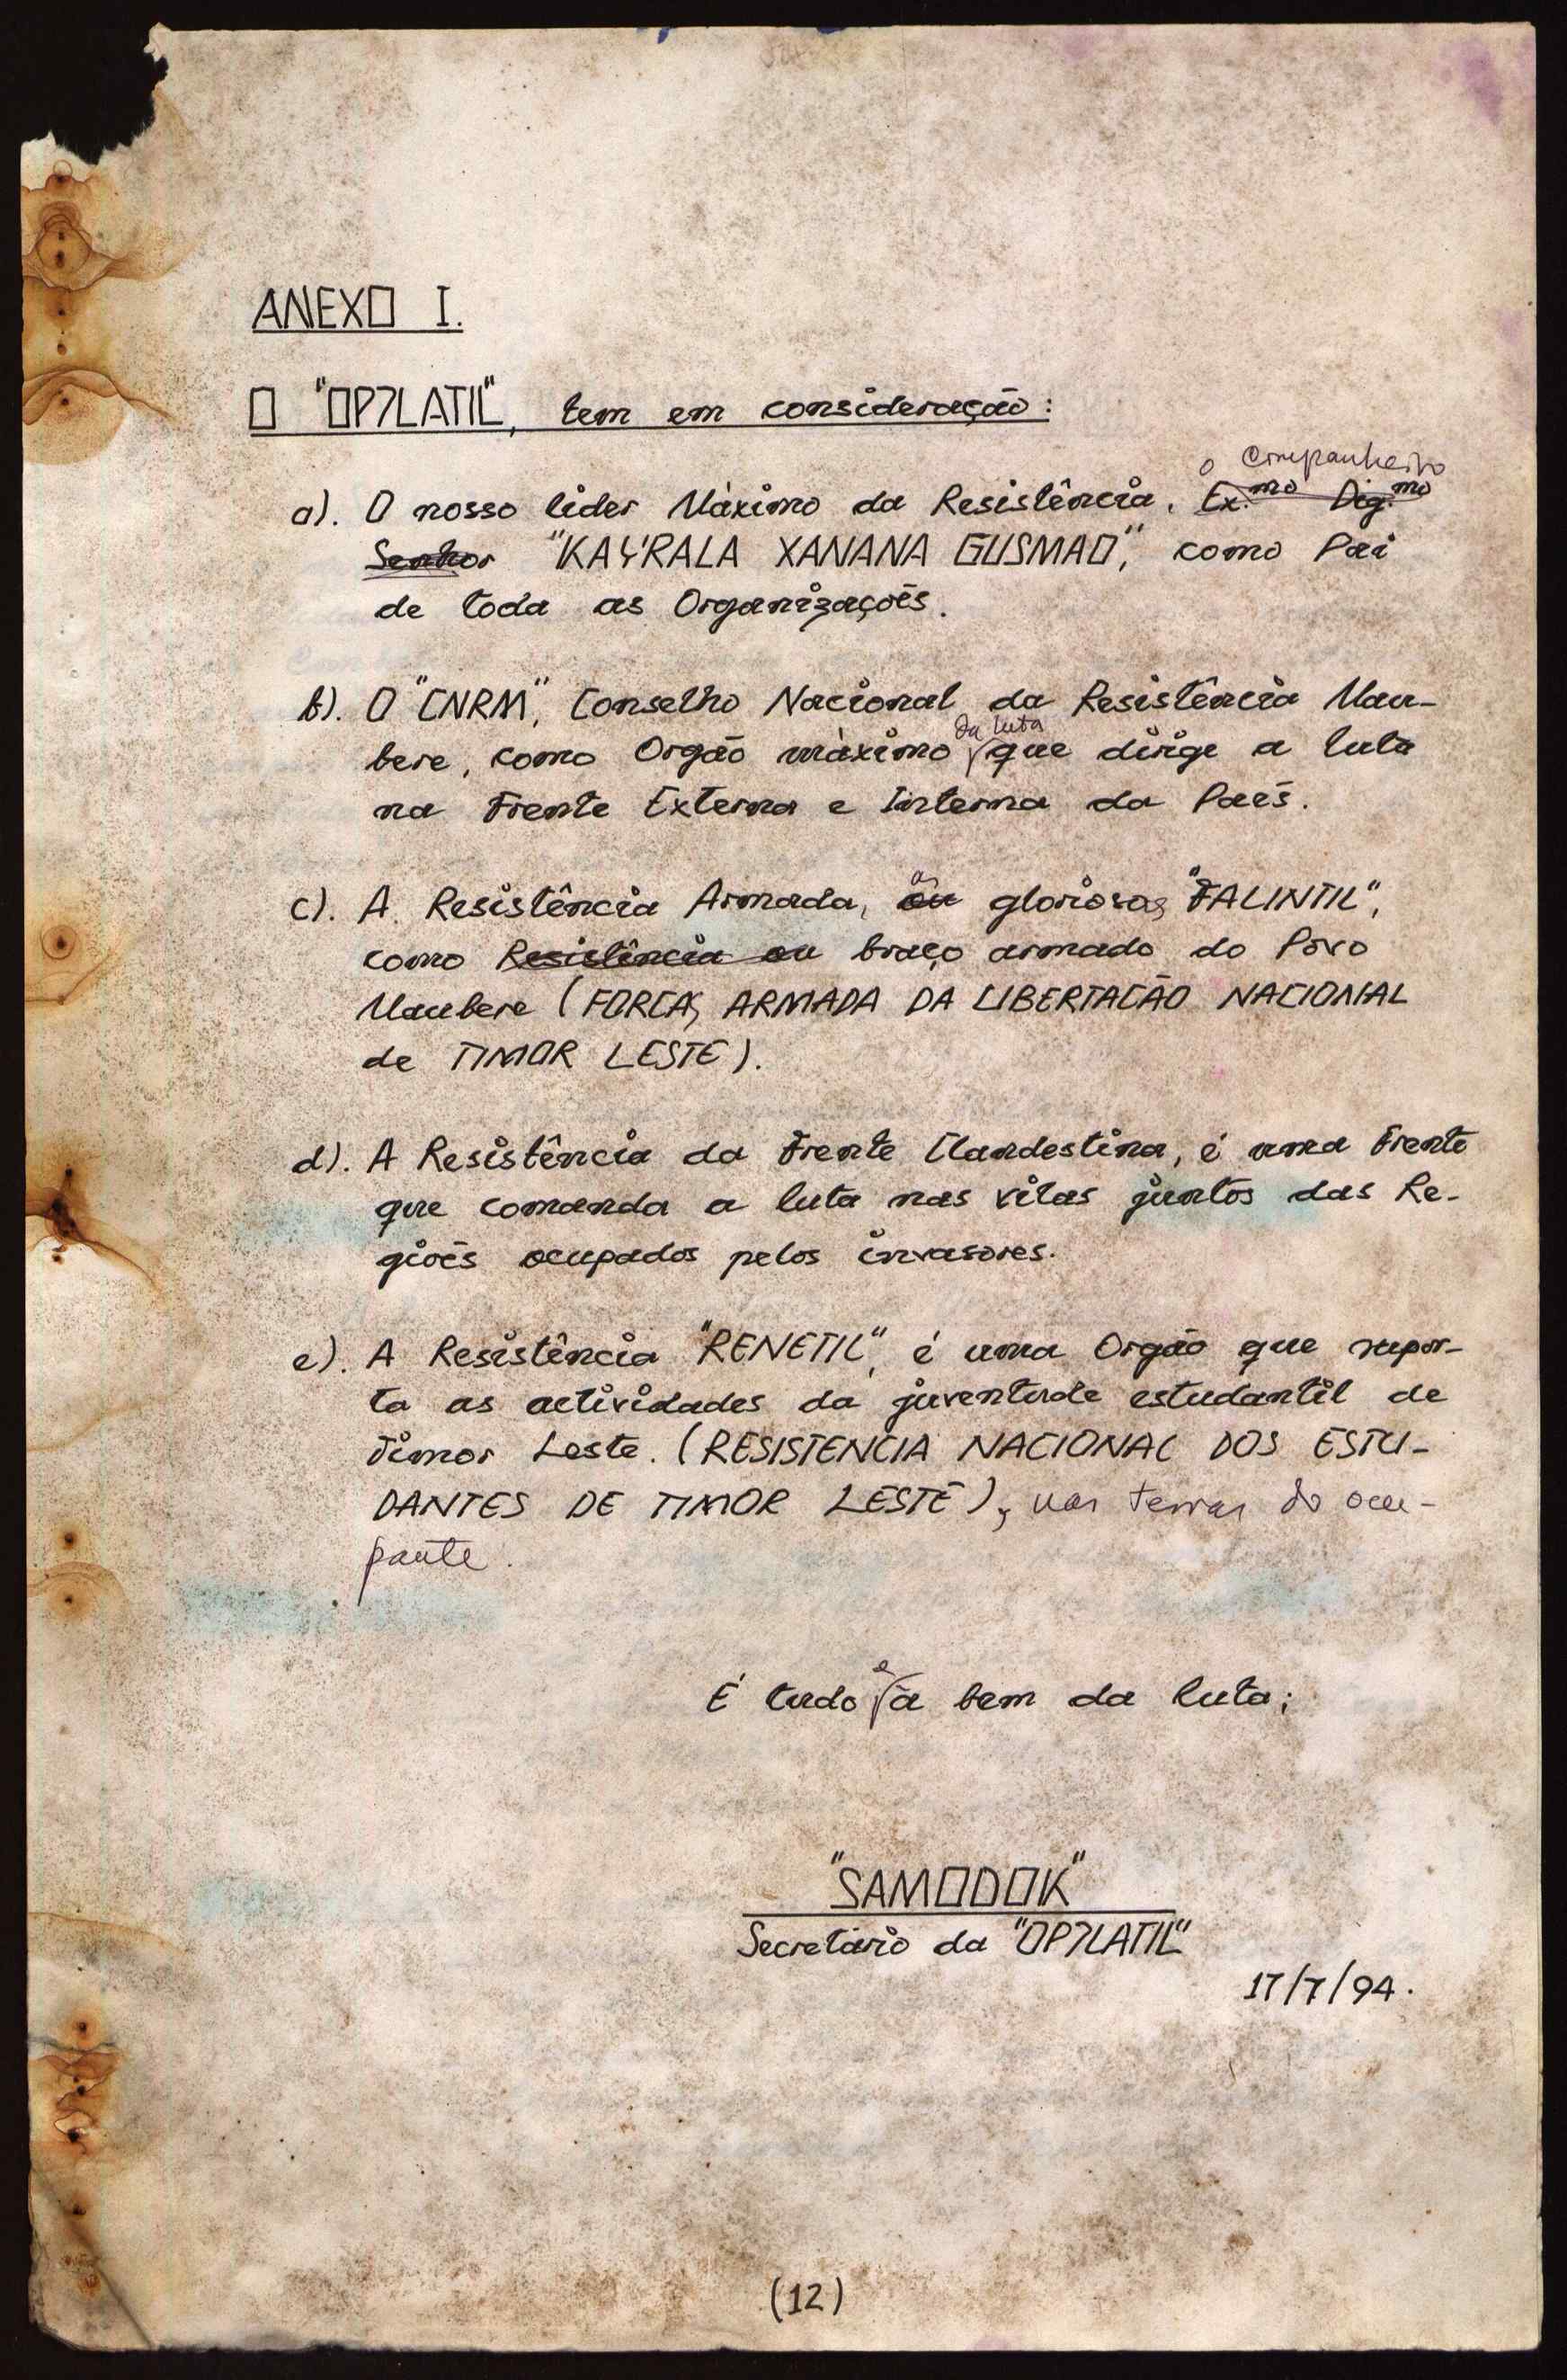 ANEXO I.
O "OP7LATIL", tem em consideração:
o Companheiro
a). O nosso lider Màximo da Resistência, Ex.mo Dig.mo
Senhor "KAY'RALA XANANA GUSMAO", como Pai
de toda as Organizaçoẽs.
b). O "CNRM", Conselho Nacional da Resistência Mau-
da luta
bere, como Orgão màximo que dirige a luta
na Frente Externa e Interna da Paēs.
c). A Resistência Armada, ou as gloriosas "FALINTIL",
como Resistência ou braço armado do Povo
Maubere (FORCAS ARMADA DA LIBERTACÃO NACIONAL
de TIMOR LESTE).
d). A Resistência da Frente Clandestina, é uma Frente
que comanda a luta nas vilas juntos das Re-
gioẽs ocupados pelos invasores.
e). A Resistência "RENETIL", é uma Orgão que supor-
ta as actividades da juventude estudantil de
Timor Leste. (RESISTENCIA NACIONAL DOS ESTU-
DANTES DE TIMOR LESTE), nas terras do ocu-
pante.
e
É tudo à bem da luta;
"SAMODOK"
Secretário da "OP7LATIL"
17/7/94.
(12)